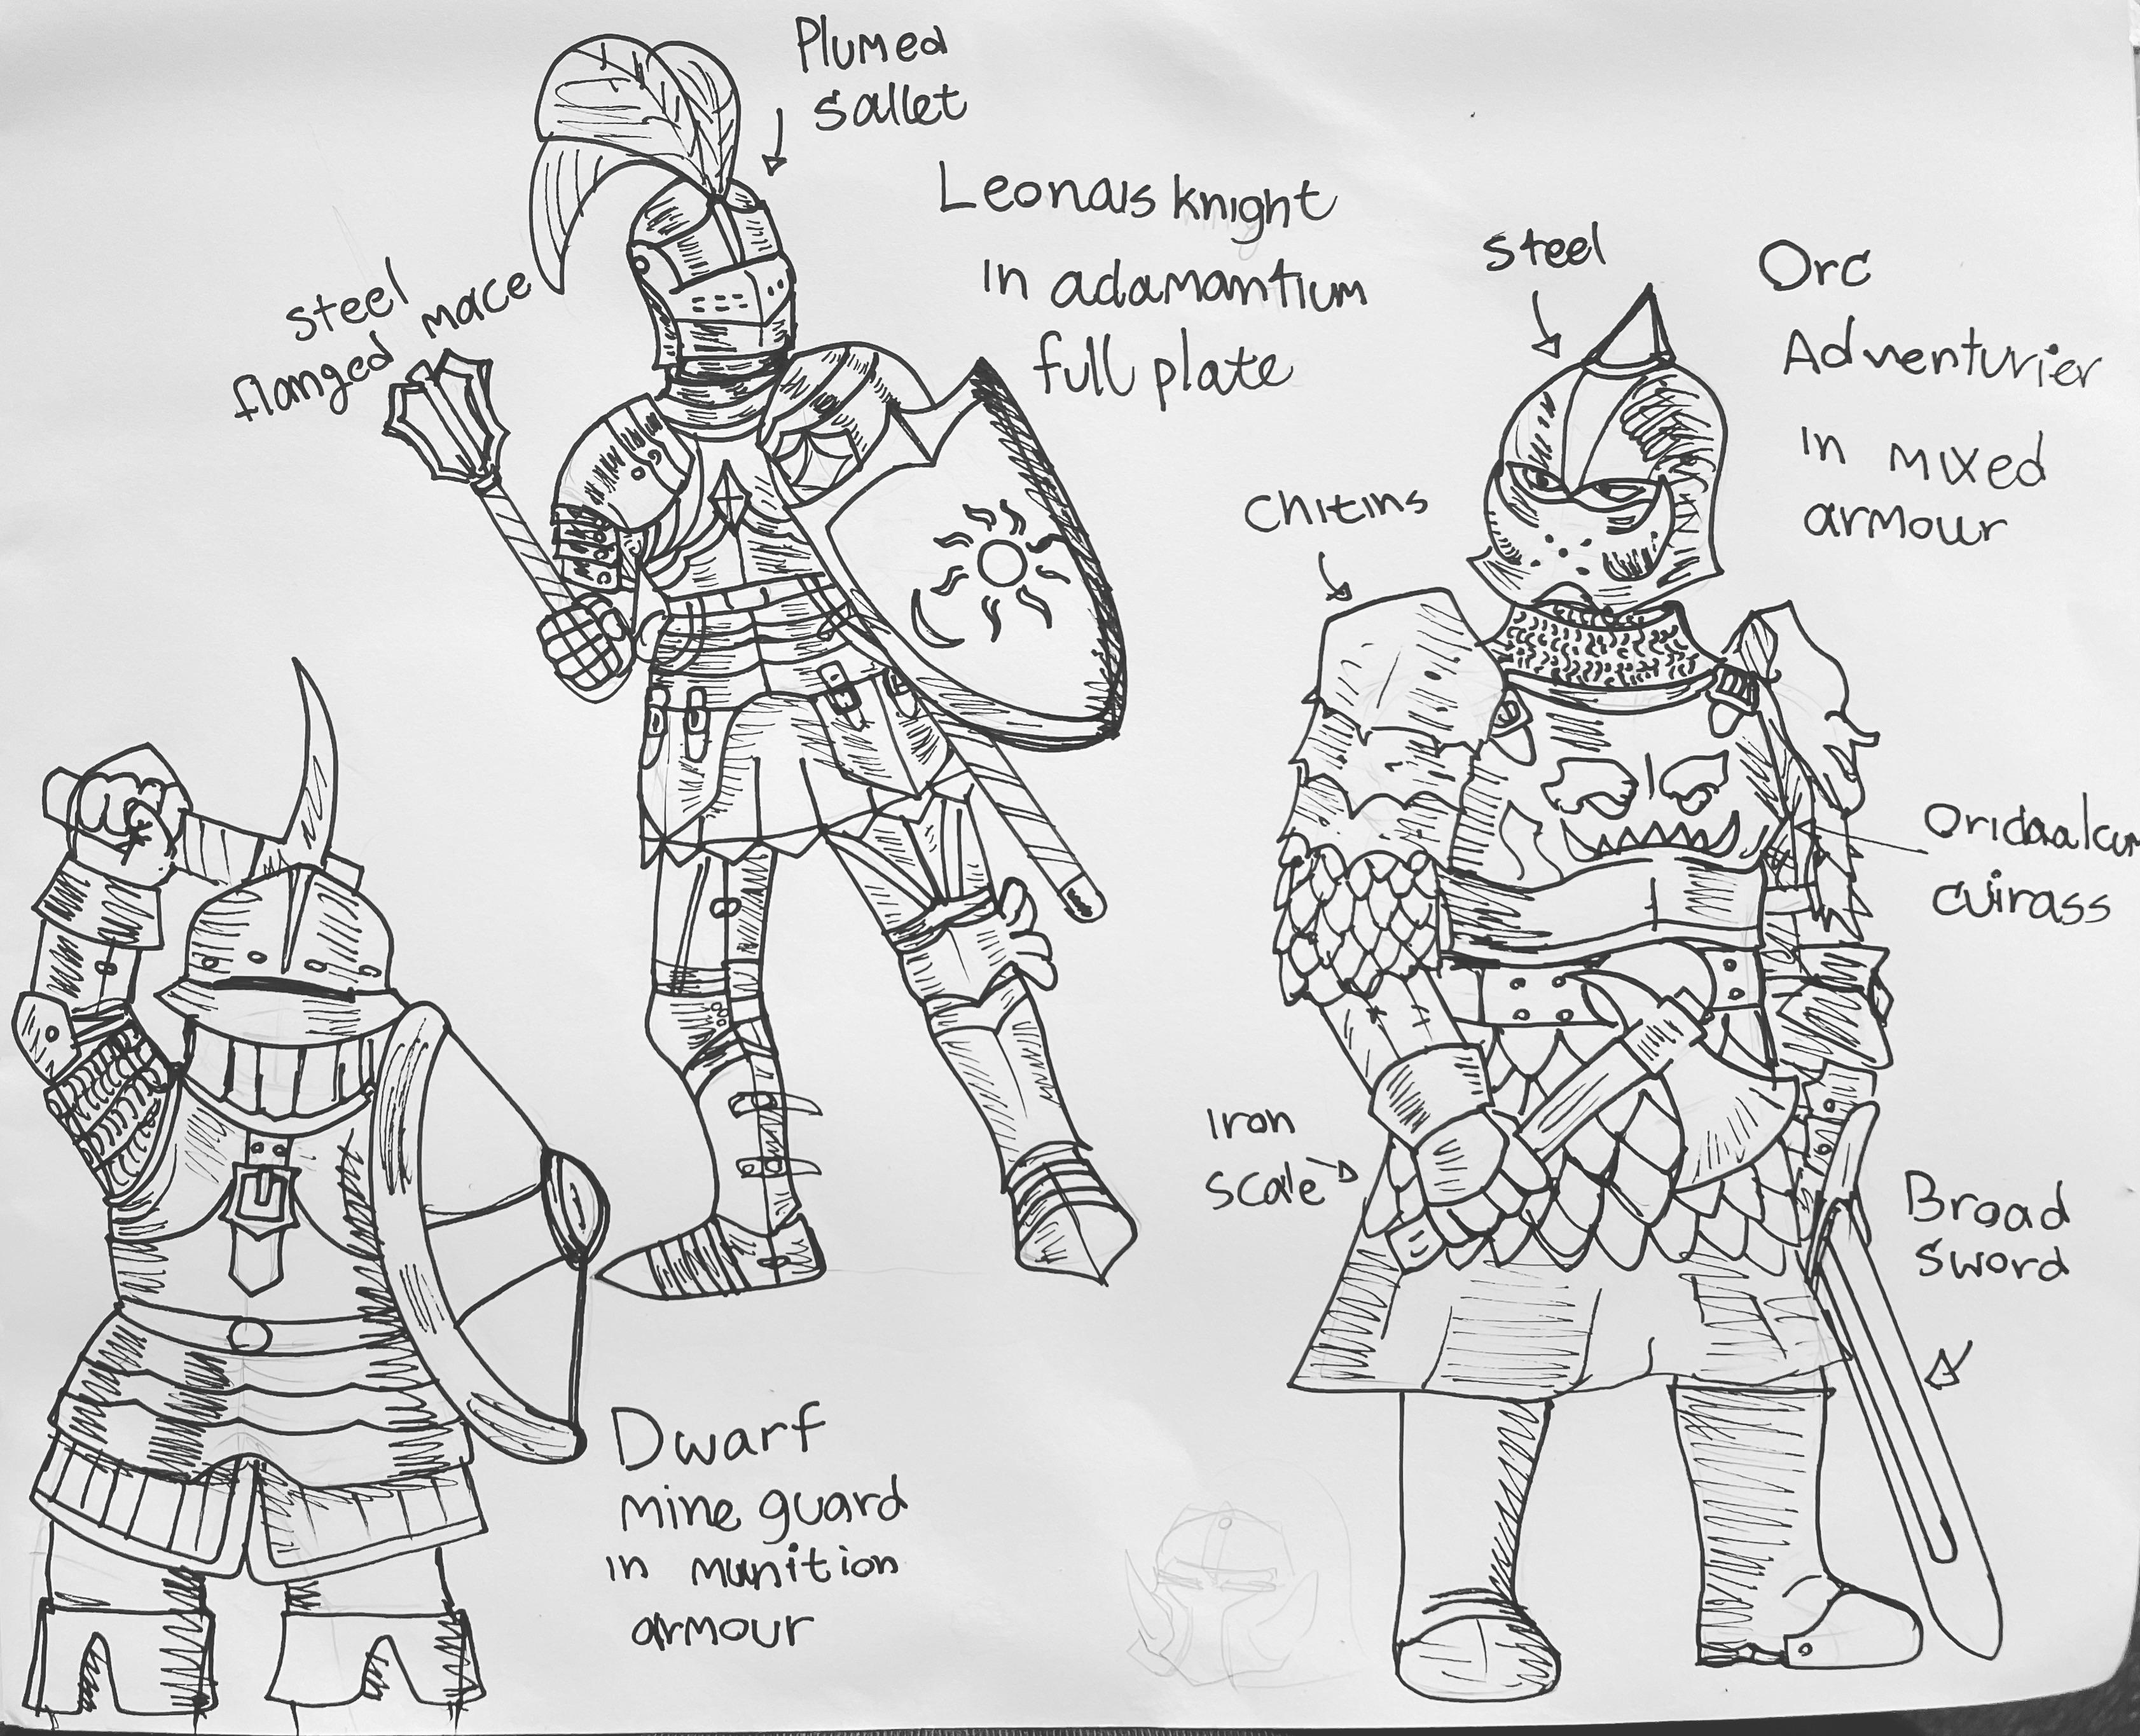 Plumed
sallet
Leonais knight
in adamantium
full plate
steel
flanged mace
steel
Orc
Adventurier
in mixed
armour
Chitins
Oridaalcum
cuirass
Iron
scale
Broad
sword
Dwarf
mine guard
in munition
armour